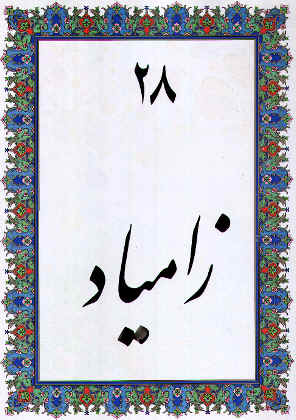 ۲۸
زامیاد